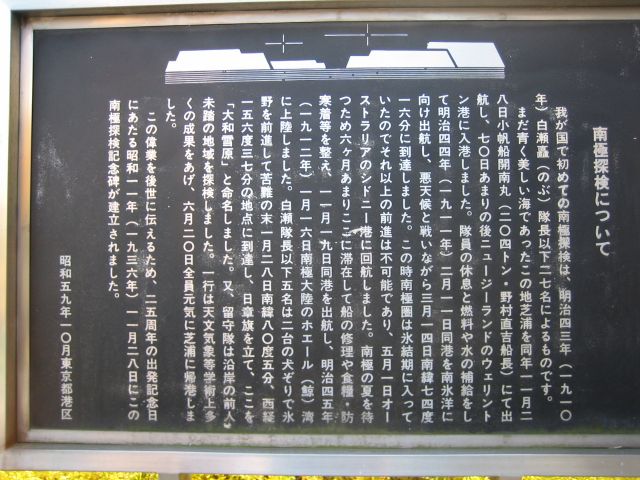 南極探検について
我が国で初めての南極探検は、明治四三年（一九一〇
年）白瀬矗（のぶ）隊長以下二七名によるものです。
まだ青く美しい海であったこの地芝浦を同年一一月二
八日小帆船開南丸（二〇四トン・野村直吉船長）にて出
航し、七〇日あまりの後ニュージーランドのウェリント
ン港に入港しました。隊員の休息と燃料や水の補給をし
て明治四四年（一九一一年）二月一一日同港を南氷洋に
向け出航し、悪天候と戦いながら三月一四日南緯七四度
一六分に到達しました。この時南極圏は氷結期に入って
いたのでそれ以上の前進は不可能であり、五月一日オー
ストラリアのシドニー港に回航しました。南極の夏を待
つため六ヶ月あまりここに滞在して船の修理や食糧・防
寒着等を整え、一一月一九日同港を出航し、明治四五年
（一九一二年）一月一六日南極大陸のホエール（鯨）湾
に上陸しました。白瀬隊長以下五名は二台の犬ぞりで氷
野を前進して苦難の末一月二八日南緯八〇度五分、西経
一五六度三七分の地点に到達し、日章旗を立て、ここを
「大和雪原」と命名しました。又、留守隊は沿岸の前人
未踏の地域を探検しました。一行は天文気象等学術上多
くの成果をあげ、六月二〇日全員元気に芝浦に帰港しま
した。
この偉業を後世に伝えるため、二五周年の出発記念日
にあたる昭和一一年（一九三六年）一一月二八日にこの
南極探検記念碑が建立されました。
昭和五九年一〇月東京都港区